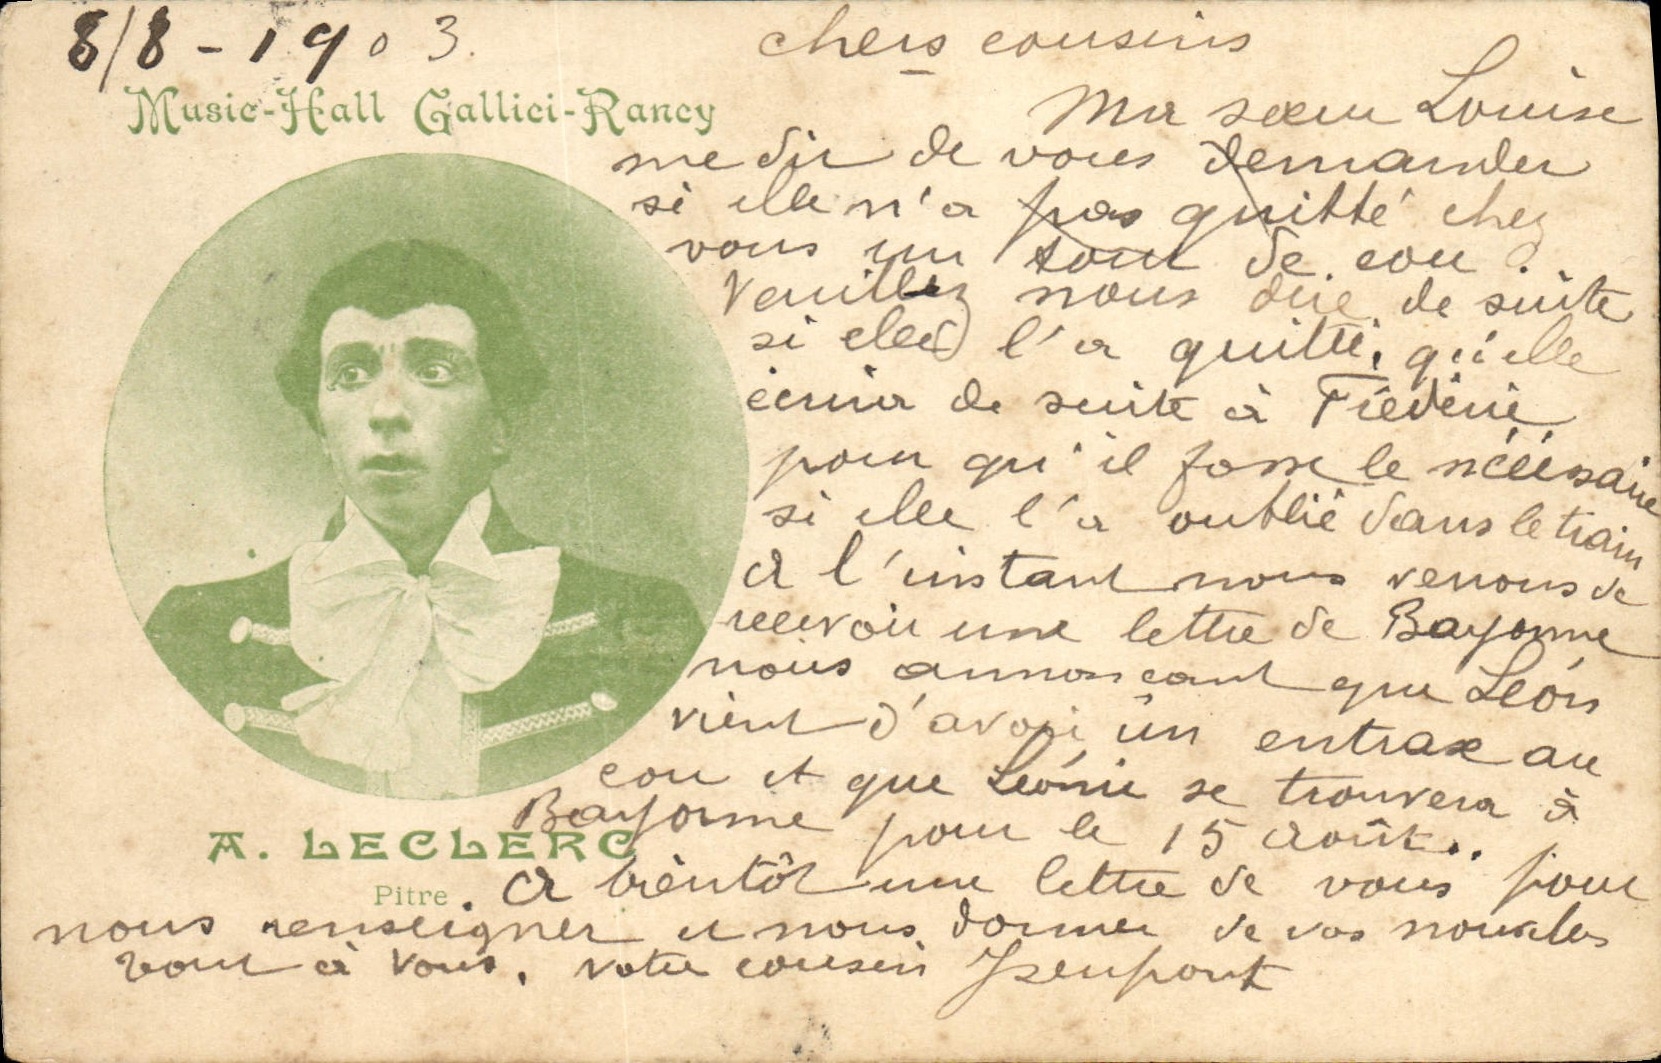 8/8 - 1903.
Music-Hall Gallici-Rancy
chers cousins
Ma sœur Louise
me dit de vous demander
si elle n'a pas quitté chez
vous un tour de cou.
Veuillez nous dire de suite
si elle l'a quitté, qu'elle
écrira de suite à Fréderic
pour qu'il fasse le nécéssaire
si elle l'a oublié dans le train
A l'instant nous venons de
recevoir une lettre de Bayonne
nous annonçant que Léon
vient d'avoir un entrax au
cou et que Léonie se trouvera à
Bayonne pour le 15 Août..
A. LECLERC
Pitre.
A bientôt une lettre de vous pour
nous renseigner et nous donner de vos nouvelles
Tout à vous. votre cousin